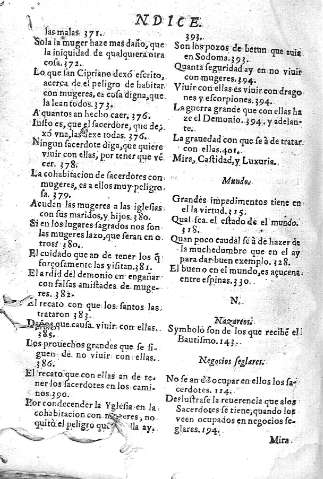 NDICE.
las malas. 371.
Sola la muger haze mas daño, que
la iniquidad de qualquiera otra
cosa. 372.
Lo que san Cipriano dexó escrito,
acerca de el peligro de habitar
con mugeres, es cosa digna, que
la lean todos. 373.
A quantos an hecho caer. 376.
Iusto es, que el sacerdote, que de-
xó vna, las dexe todas. 376.
Ningun sacerdote diga, que quiere
viuir con ellas, por tener que vẽ
cer. 378.
La cohabitacion de sacerdotes con
mugeres, es a ellos muy peligro-
sa. 379.
Acuden las mugeres a las iglesias
con sus maridos, y hijos. 380.
Si en los lugares sagrados nos son
las mugeres lazo, que seran en o-
tros? 380.
El cuidado que an de tener los q̃
forçosamente las visitan. 381.
El ardid del demonio en engañar
con falsas amistades de muge-
res. 382.
El recato con que los santos las
trataron 383.
Daños que causa viuir con ellas.
385.
Los prouechos grandes que se si-
guen de no viuir con ellas.
386.
El recato que con ellas an de te-
ner los sacerdotes en los cami-
nos. 390.
Por condecender la Yglesia en la
cohabitacion con mugeres, no
quitò el peligro que ay.
393.
Son los pozos de betun que auia
en Sodoma. 393.
Quanta seguridad ay en no viuir
con mugeres. 394.
Viuir con ellas es viuir con drago-
nes, y escorpiones. 394.
La guerra grande que con ellas ha
ze el Demonio. 394. y adelan-
te.
La grauedad con que se à de tratar
con ellas. 401.
Mira, Castidad, y Luxuria.
Mundo.
Grandes impedimentos tiene en
el la virtud. 315.
Qual sea el estado de el mundo.
318.
Quan poco caudal se à de hazer de
la muchedumbre que en el ay
para dar buen exemplo. 328.
El bueno en el mundo, es açucena
entre espinas. 330.
N.
Nazareos.
Symbolo son de los que recibẽ el
Bautismo. 143.
Negocios seglares.
No se an de ocupar en ellos los sa-
cerdotes. 114.
Deslustrase la reuerencia que a los
Sacerdotes se tiene, quando los
veen ocupados en negocios se-
glares. 194.
Mira